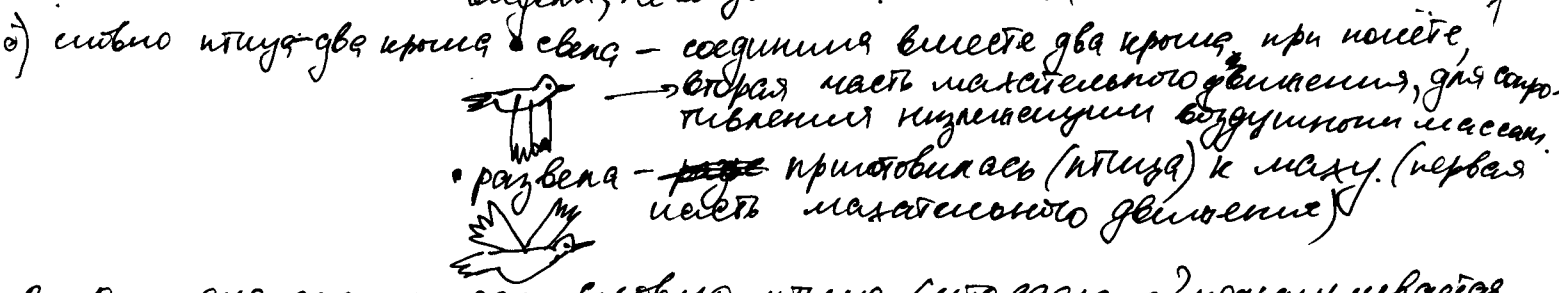 б) словно птица два крыла • свела – соединила вместе два крыла при полёте,
→ вторая часть махательного движения, для сопро-
тивления низлежащим воздушным массам.
• развела – приготовилась (птица) к маху. (первая
часть махательного движения)
словно птица